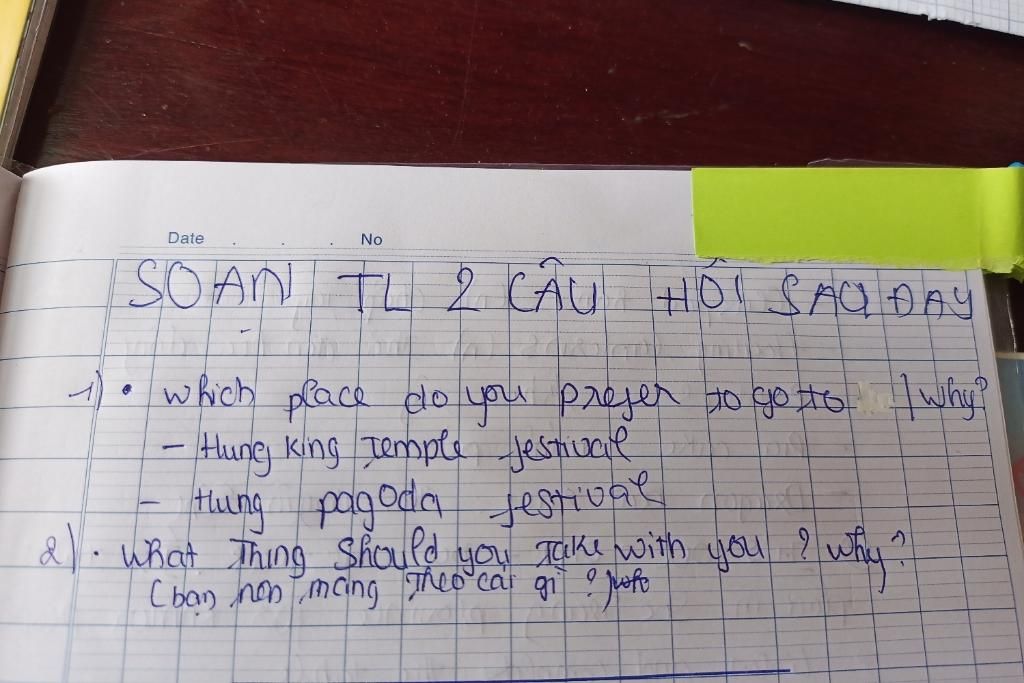 Date . . . No
SOAN TL 2 CÂU HỎI SAU ĐAY
1) • which place do you prefer to go to / why?
- Hung King Temple festival
- Hung pagoda festival
2) • what Thing should you Take with you ? why?
(bạn nen mang Theo cai gì ?